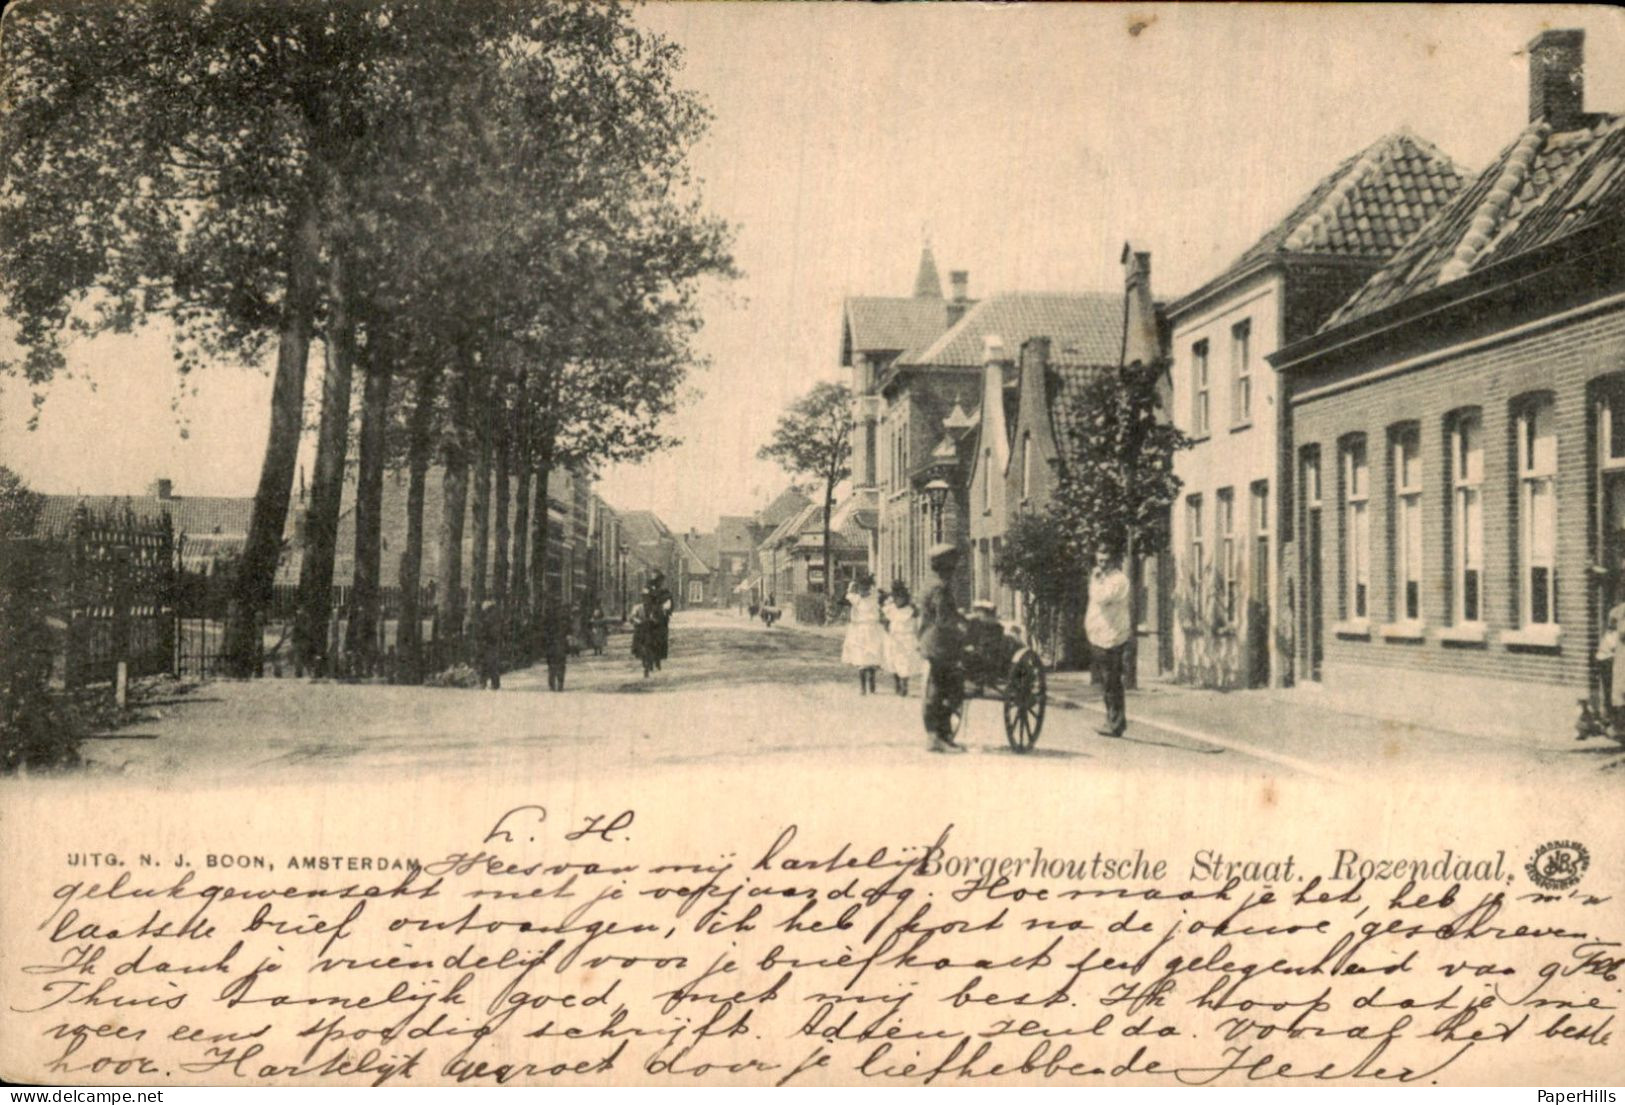 L. H.
UITG. N. J. BOON, AMSTERDAM
Borgerhoutsche Straat. Rozendaal.
Wees van mij hartelijk
gelukgewenscht met je verjaardag. Hoe maak je het, heb je m'n
laatste brief ontvangen, ik heb kort na de jouwe geschreven.
Ik dank je vriendelijk voor je briefkaart ter gelegenheid van 9 Feb.
Thuis tamelijk goed, met mij best. Ik hoop dat je me
weer eens spoedig schrijft. Adieu Hulda. Vooral het beste
hoor. Hartelijk gegroet door je liefhebbende Hester.
PaperHills
delcampe.net